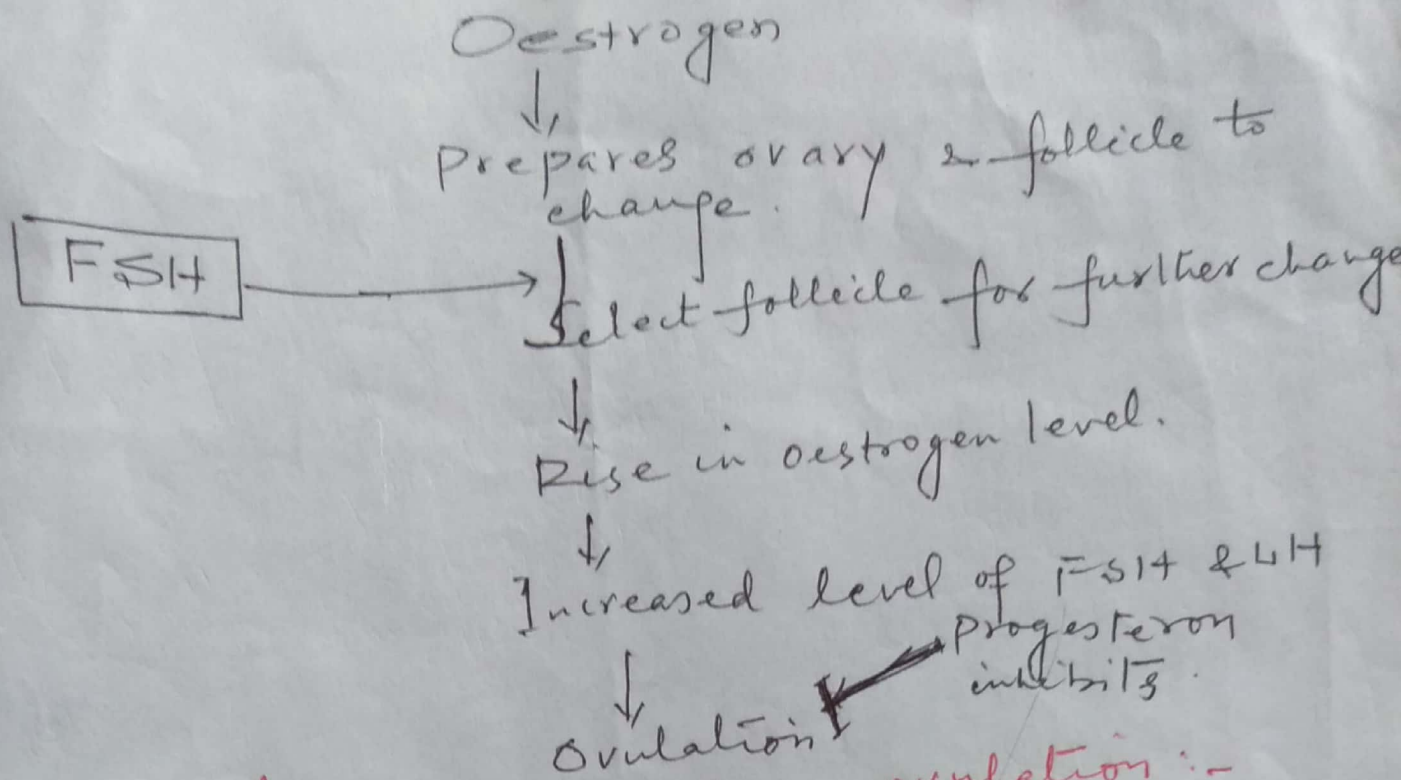 Oestrogen
Prepares ovary & follicle to
change.
FSH
Select follicle for further change
Rise in oestrogen level.
Increased level of FSH & LH
Progesteron
inhibits.
Ovulation